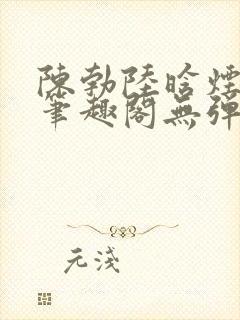 陳勃陸晗煙
筆趣閣無彈
元淺